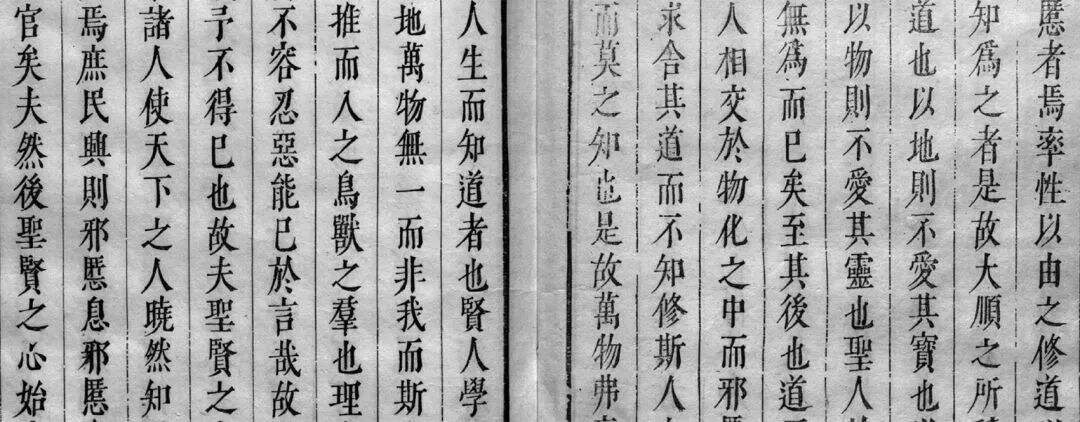 慝者焉率性以由之修道
知爲之者是故大順之所
道也以地則不愛其寶也
以物則不愛其靈也聖人
無爲而已矣至其後也道
人相交於物化之中而邪
求合其道而不知修斯人
而莫之知也是故萬物弗
人生而知道者也賢人學
地萬物無一而非我而斯
推而入之鳥獸之羣也理
不容忍惡能已於言哉故
予不得已也故夫聖賢之
諸人使天下之人曉然知
焉庶民興則邪慝息邪慝
官矣夫然後聖賢之心始